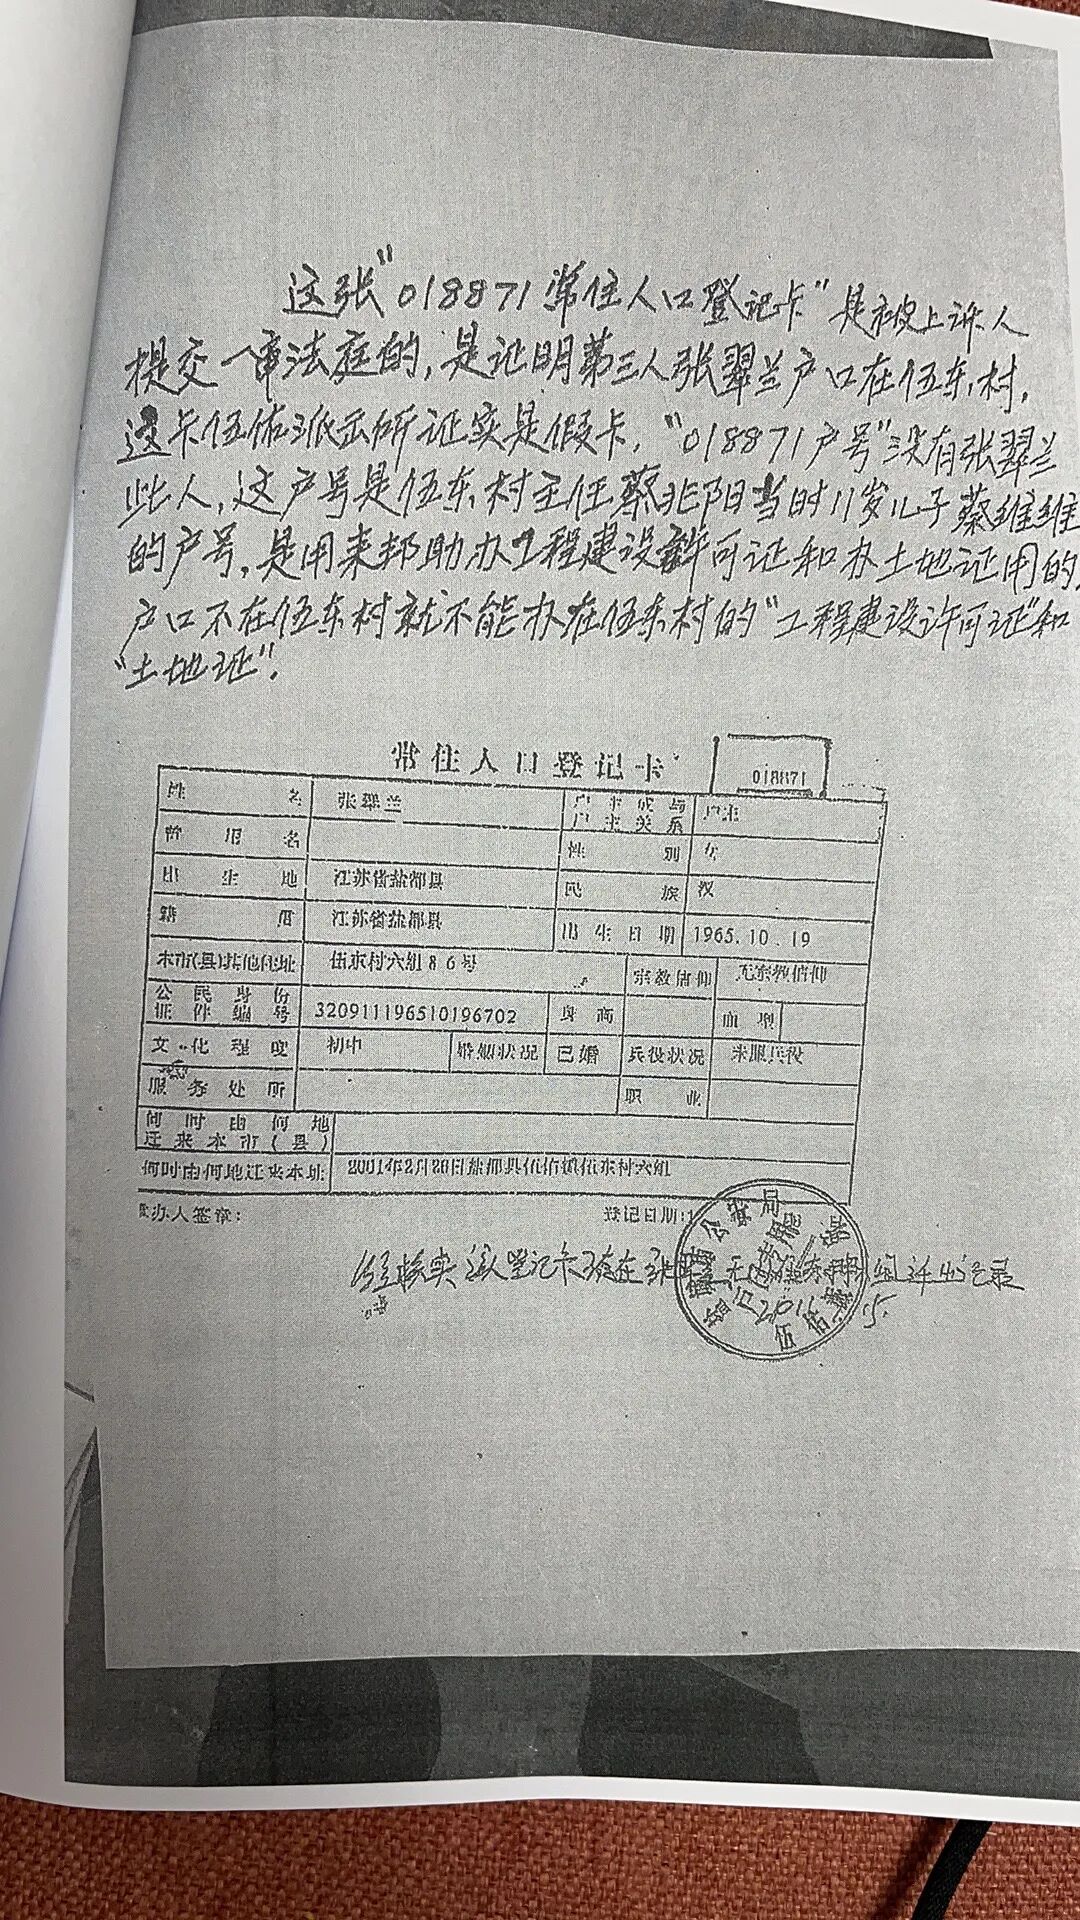 这张"018871常住人口登记卡"是被上诉人
提交一审法庭的,是证明第三人张翠兰户口在伍东村,
这卡伍佑派出所证实是假卡,"018871户号"没有张翠兰
此人,这户号是伍东村主任蔡兆阳当时11岁儿子蔡维维
的户号,是用来邦助办工程建设许可证和办土地证用的,
户口不在伍东村就不能办在伍东村的"工程建设许可证"和
"土地证".
常住人口登记卡 018871
姓名 张翠兰 户主或与户主关系 户主
曾用名 性别 女
出生地 江苏省盐都县 民族 汉
籍贯 江苏省盐都县 出生日期 1965.10.19
本市(县)其他住址 伍东村六组86号 宗教信仰 无宗教信仰
公民身份证件编号 320911196510196702 身高 血型
文化程度 初中 婚姻状况 已婚 兵役状况 未服兵役
服务处所 职业
何时由何地迁来本市(县)
何时由何地迁来本址 2001年2月28日盐都县伍佑镇伍东村六组
办人签章: 登记日期:
经核实 该人登记卡
公安局
户口专用
伍佑